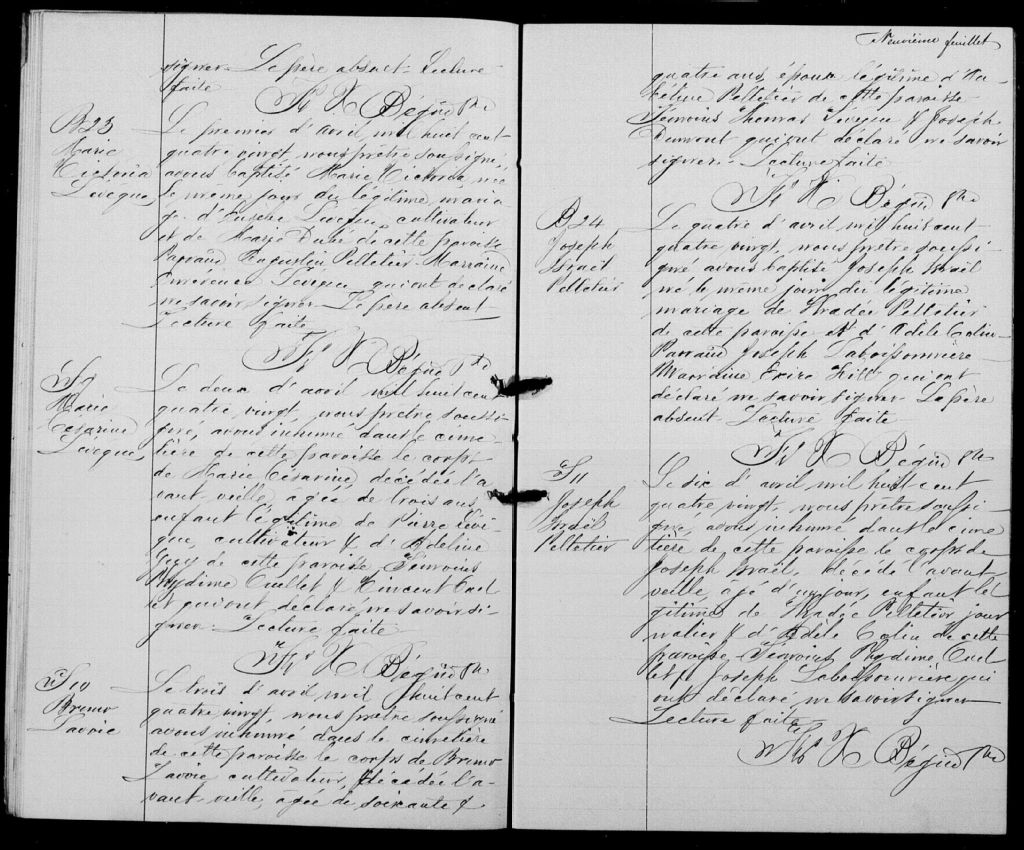 signer. Le père absent. Lecture
faite
Fs X Bégin Ptre
B 23
Marie
Victoria
Lévêque
Le premier d'avril mil huit cent
quatre vingt, nous prêtre soussigné,
avons baptisé Marie Victoria, née
le même jour du légitime maria-
ge d'Eusèbe Lévêque, cultivateur
et de Marie Dubé de cette paroisse
Parrain Augustin Pelletier Marraine
Lévêque, qui ont déclaré
ne savoir signer. Le père absent
Lecture faite
Fs X Bégin Ptre
S 9
Marie
Césarine
Lévêque
Le deux d'avril mil huit cent
quatre vingt, nous prêtre soussi-
gné, avons inhumé dans le cime-
tière de cette paroisse le corps
de Marie Césarine décédée l'a-
vant veille, agée de trois ans,
enfant légitime de Pierre Lévê-
que, cultivateur & d'Adeline
de cette paroisse Témoins
Phydime Ouellet & Vincent Ouel-
let qui ont déclaré ne savoir si-
gner. Lecture faite
Fs X Bégin Ptre
S 10
Bruno
Lavoie
Le trois d'avril mil huit cent
quatre vingt, nous prêtre soussigné
avons inhumé dans le cimetière
de cette paroisse le corps de Bruno
Lavoie cultivateur, décédé l'a-
vant veille, âgée de soixante &
Neuvième feuillet
quatre ans, époux légitime d'
Pelletier de cette paroisse
Témoins Thomas & Joseph
Dumont qui ont déclaré ne savoir
signer. Lecture faite
Fs X Bégin Ptre
B 24
Joseph
Israël
Pelletier
Le quatre d'avril mil huit cent
quatre vingt, nous prêtre soussi-
gné avons baptisé Joseph Israël
né le même jour du légitime
mariage de Thadée Pelletier
de cette paroisse et d'Adèle Colin
Parrain Joseph Laboissonnière
Marraine qui ont
déclaré ne savoir signer Le père
absent Lecture faite
Fs X Bégin Ptre
S 11
Joseph
Israël
Pelletier
Le six d'avril mil huit cent
quatre vingt, nous prêtre soussi-
gné, avons inhumé dans le cime-
tière de cette paroisse le corps de
Joseph Israël, décédé l'avant
veille, âgé d'un jour, enfant lé-
gitime de Thadée Pelletier jour-
nalier & d'Adèle Colin de cette
paroisse, Témoins Phydime Ouel-
let & Joseph Laboissonnière qui
ont déclaré ne savoir signer
Lecture faite
Fs X Bégin Ptre